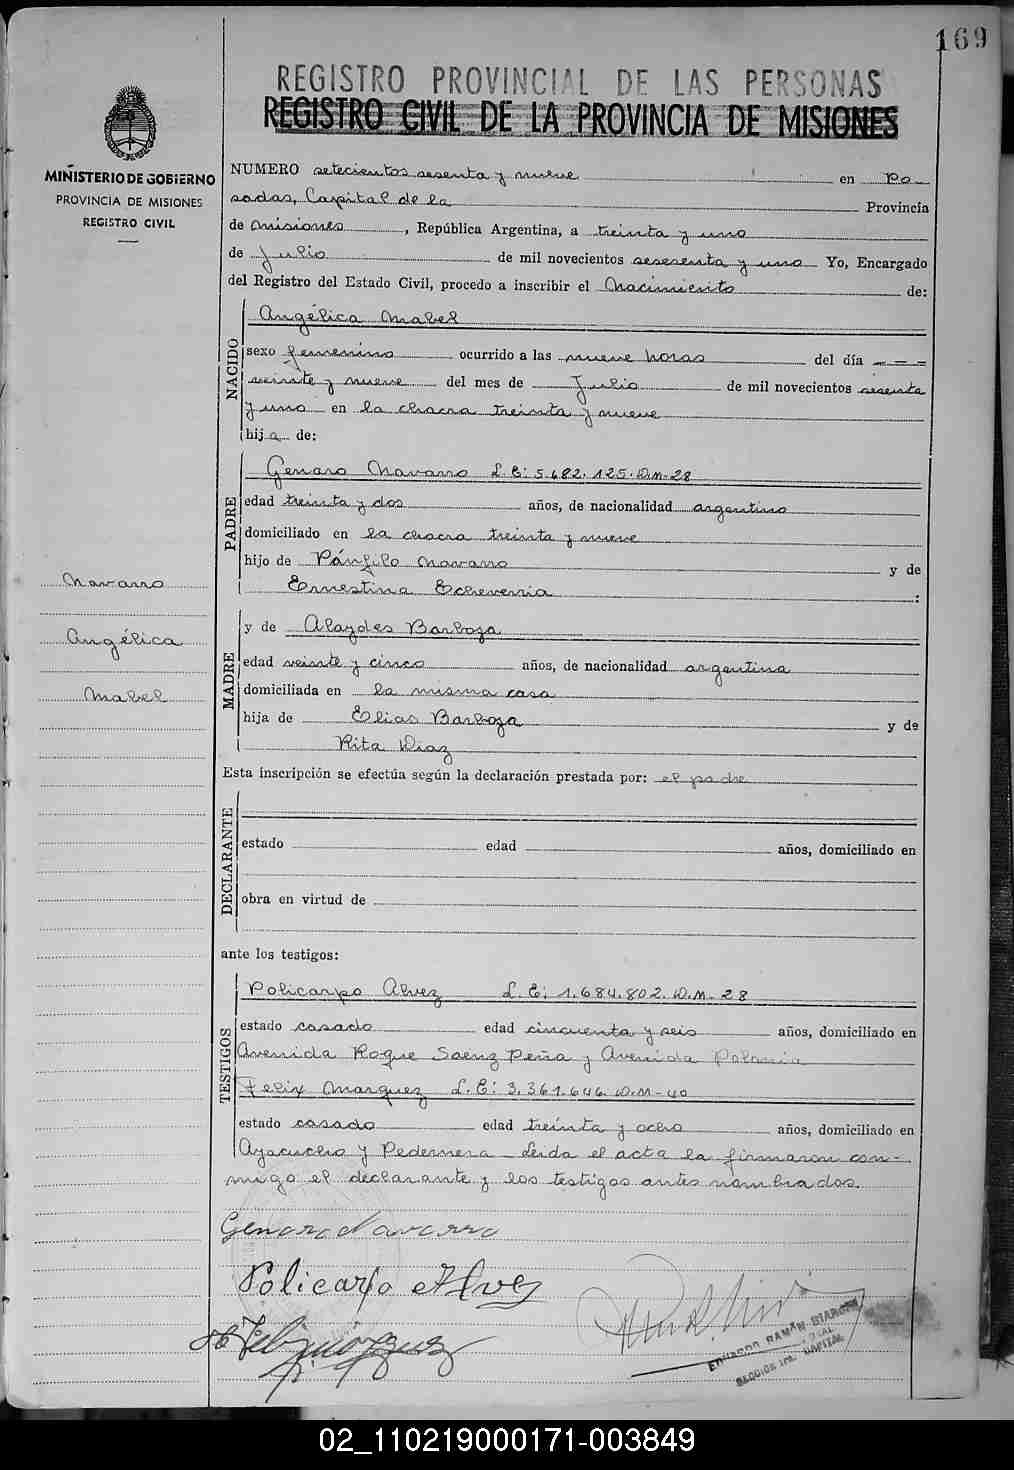 169
REGISTRO PROVINCIAL DE LAS PERSONAS
REGISTRO CIVIL DE LA PROVINCIA DE MISIONES
MINISTERIO DE GOBIERNO
PROVINCIA DE MISIONES
REGISTRO CIVIL
Navarro
Angélica
Mabel
NUMERO setecientos sesenta y nueve en Po-
sadas, Capital de la Provincia
de Misiones, República Argentina, a treinta y uno
de Julio de mil novecientos sesesenta y uno Yo, Encargado
del Registro del Estado Civil, procedo a inscribir el Nacimiento de:
NACIDO
Angélica Mabel
sexo femenino ocurrido a las nueve horas del día - - -
veinte y nueve del mes de Julio de mil novecientos sesenta
y uno en la chacra treinta y nueve
hija de:
PADRE
Genaro Navarro L.E: 5.682.125.D.M-28
edad treinta y dos años, de nacionalidad argentino
domiciliado en la chacra treinta y nueve
hijo de Pánfilo Navarro y de
Ernestina Echeverria :
MADRE
y de Alaydes Barboza
edad veinte y cinco años, de nacionalidad argentina
domiciliada en la misma casa
hija de Elias Barboza y de
Rita Diaz
Esta inscripción se efectúa según la declaración prestada por: el padre
DECLARANTE
estado edad años, domiciliado en
obra en virtud de
ante los testigos:
TESTIGOS
Policarpo Alvez L.E: 1.684.802.D.M-28
estado casado edad cincuenta y seis años, domiciliado en
Avenida Roque Saenz Peña y Avenida Polonia
Felix Marquez L.E: 3.361.646.D.M-40
estado casado edad treinta y ocho años, domiciliado en
Ayacucho y Pedernera - Leida el acta la firmaron con-
migo el declarante y los testigos antes nombrados.
Genaro Navarro
Policarpo Alvez
RAMÓN BIANCHI
CAPITAL
02_110219000171-003849